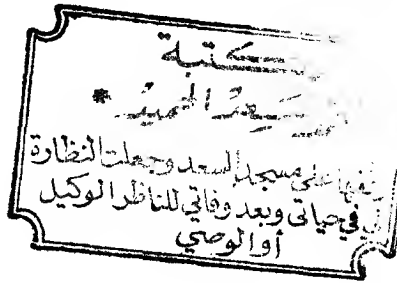 مكتبة
سعد الحميد *
وقفها على مسجد السعد وجعلت النظارة
لي في حياتي وبعد وفاتي للناظر الوكيل
أو الوصي